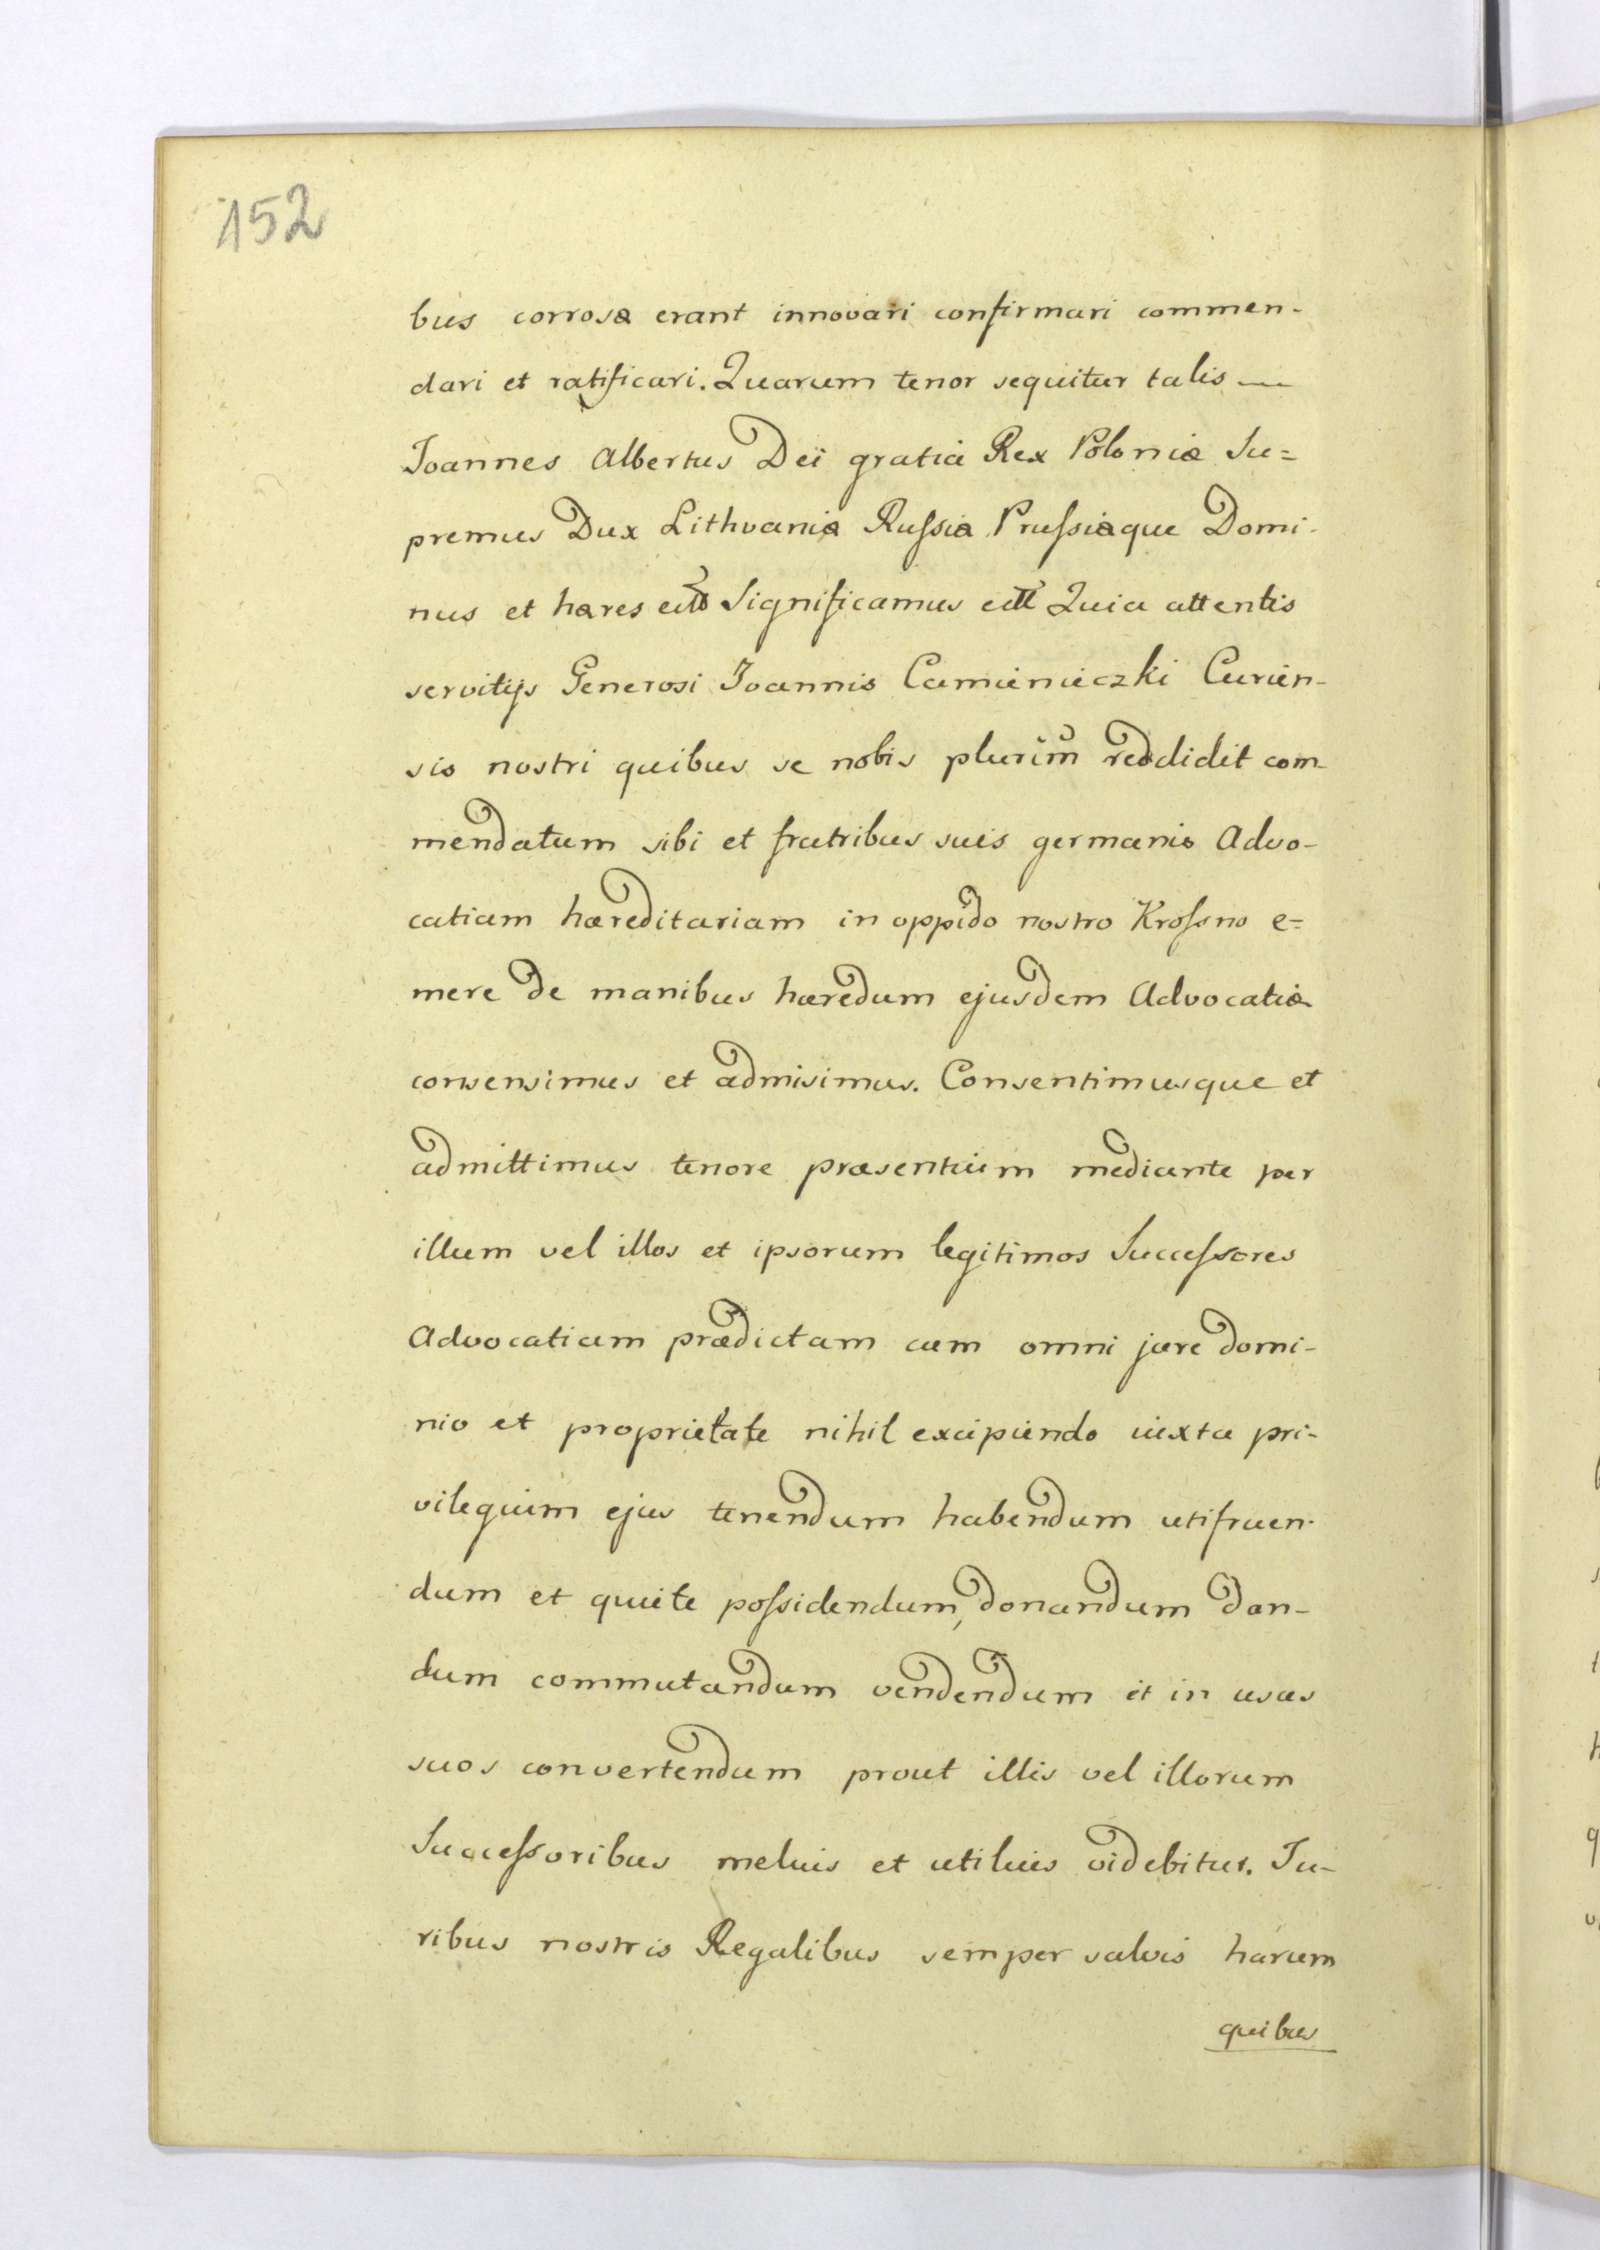 152
bus corrosæ erant innovari confirmari commen-
dari et ratificari. Quarum tenor sequitur talis —
Joannes Albertus Dei gratia Rex Poloniæ Su=
premus Dux Lithvaniæ Russiæ Prussiæque Domi-
nus et hæres ett Significamus ett Quia attentis
servitijs Generosi Joannis Camienieczki Curien-
sis nostri quibus se nobis plurim̃ reddidit com-
mendatum sibi et fratribus suis germanis Advo-
catiam hæreditariam in oppido nostro Krossno e=
mere de manibus hæredum ejusdem Advocatiæ
consensimus et admisimus. Consentimusque et
admittimus tenore præsentium mediante per
illum vel illos et ipsorum legitimos Successores
Advocatiam prædictam cum omni jure domi-
nio et proprietate nihil excipiendo iuxta pri-
vilegium ejus tenendum habendum utifruen-
dum et quiete possidendum, donandum dan-
dum commutandum vendendum et in usus
suos convertendum prout illis vel illorum
Successoribus melius et utilius videbitur. Ju-
ribus nostris Regalibus semper salvis harum
quibus